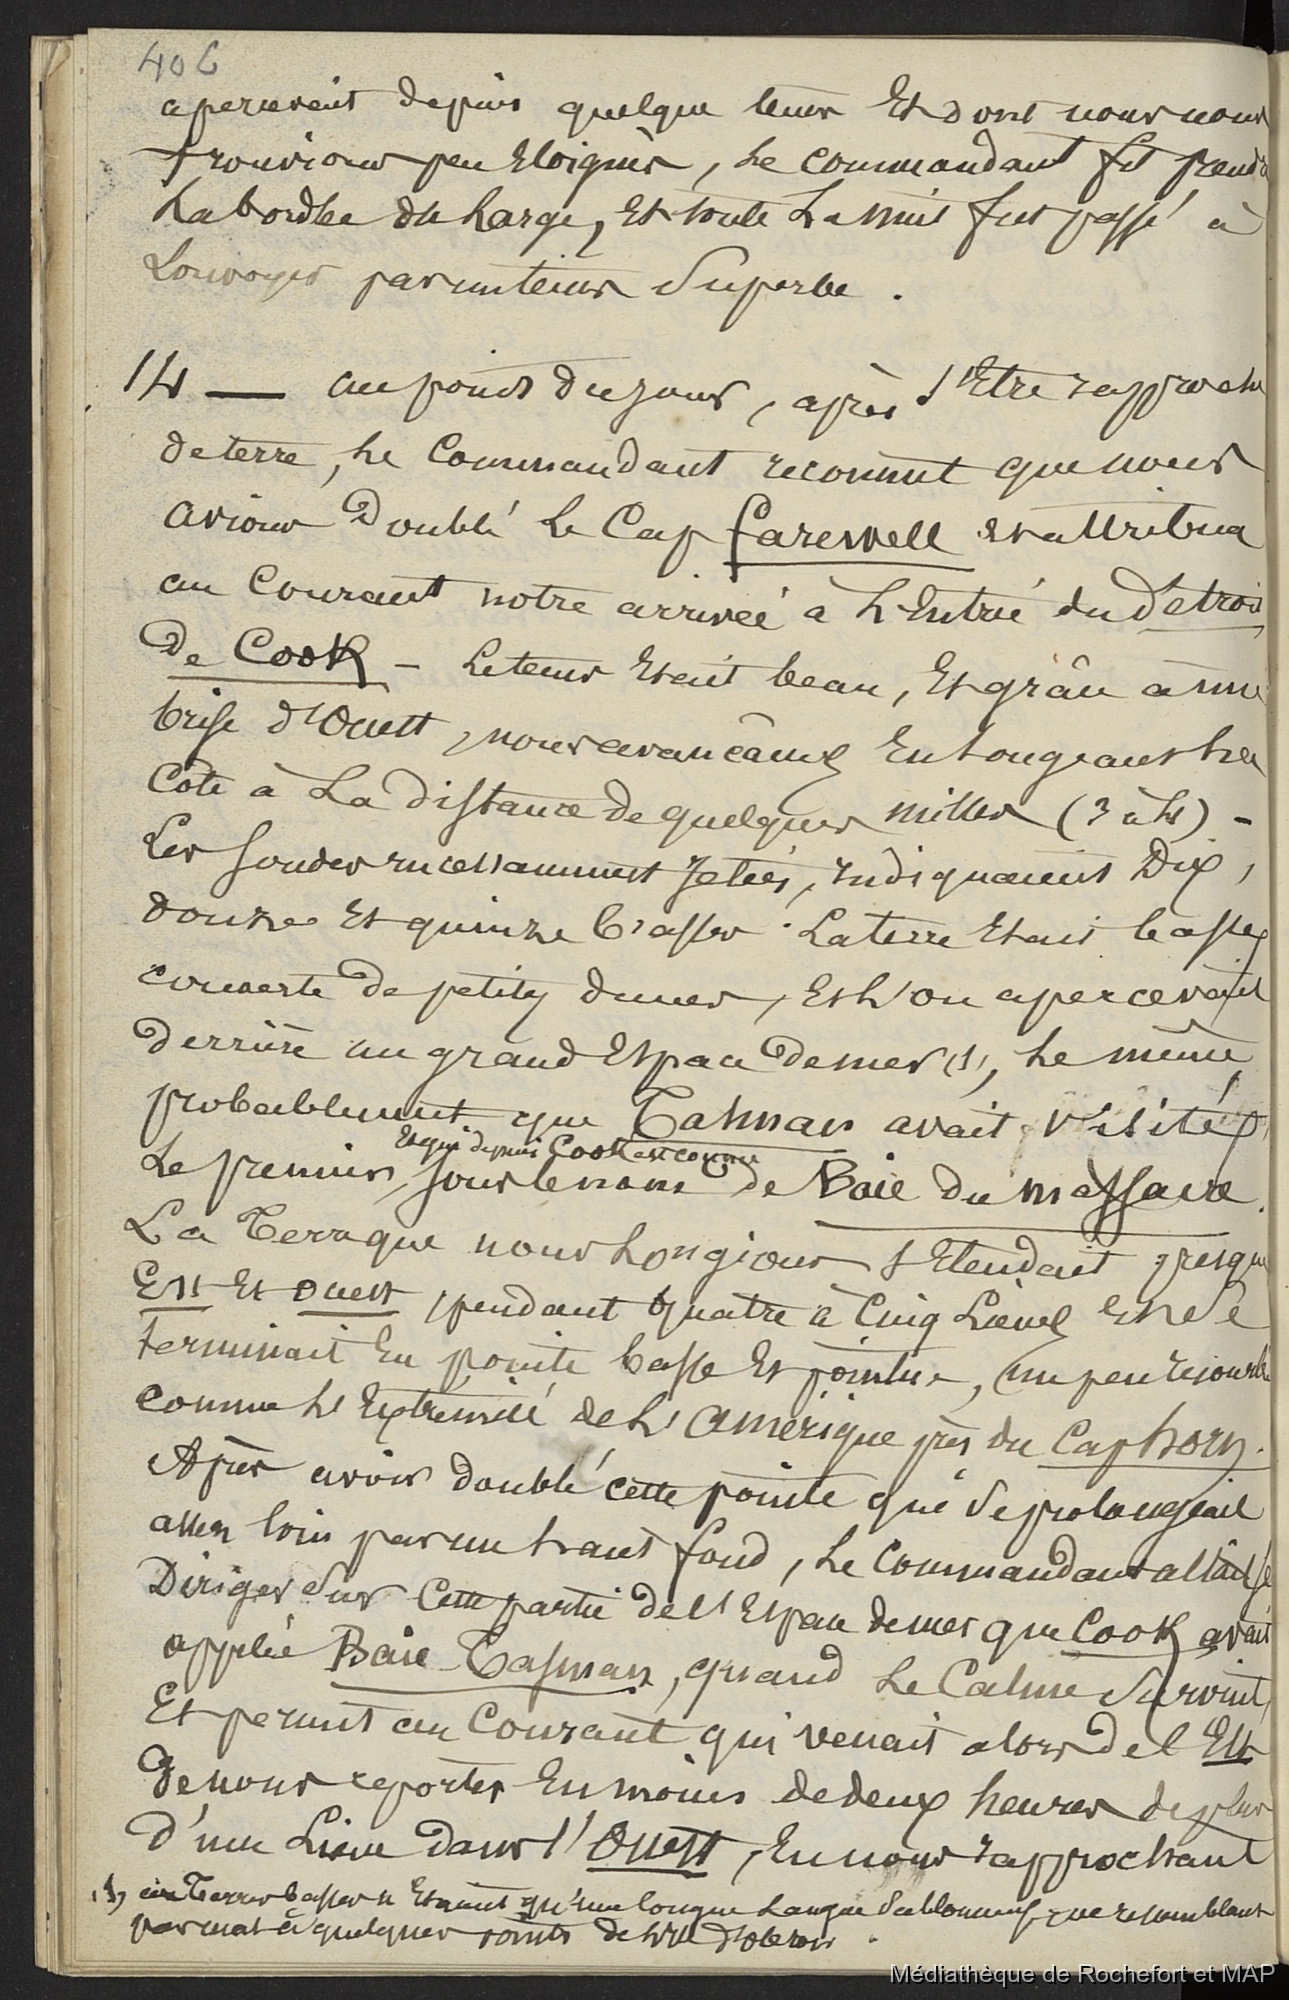 406
apercevait depuis quelque tems Et dont nous nous
trouvions peu Eloignés, Le commandant fit prendre
La bordée du Large, Et toute La nuit fut passé à
Louvoyer par un tems Superbe.
14 — au point du jour, après s'Etre rapproché
de terre, Le Commandant reconnut que nous
avions Doublé Le Cap farewell et attribua
au Courant notre arrivée à L'Entrée du Détroit
De Cook – Le tems Etait beau, Et grâce à une
brise d'Ouest, nous avançâmes En Longeant La
Côte à La distance de quelques milles (3 à 4) –
Les Sondes incessamment Jetées, indiquaient Dix,
douze Et quinze brasses. La terre Etait basse,
couverte de petites dunes, Et L'on apercevait
derrière un grand Espace De mer (1), Le même
probablement que Tasman avait visitée
Et qui depuis Cook est connu
Le premier, sous le nom de Baie du massacre.
La Terre que nous Longions s'Etendait presque
Est Et Ouest, pendant quatre à Cinq Lieues Et Se
terminait En pointe basse Et pointue, un peu recourbée
comme L'Extrémité de L'Amérique près du Cap horn.
Après avoir doublé cette pointe qui Se prolongeait
assez loin par un haut fond, Le Commandant allait se
Diriger Sur Cette partie de L'Espace de mer que Cook avait
appelée Baie Tasman, quand Le Calme Survint,
Et permit au Courant qui venait alors de l'Est
De nous reporter En moins de deux heures de plus
d'une Lieue dans l'Ouest, En nous rapprochant
(1) ces Terres basses n'Etaient qu'une longue Langue Sablonneuse, ressemblant
par mat à quelques points de L'ile d'oleron.
Médiathèque de Rochefort et MAP